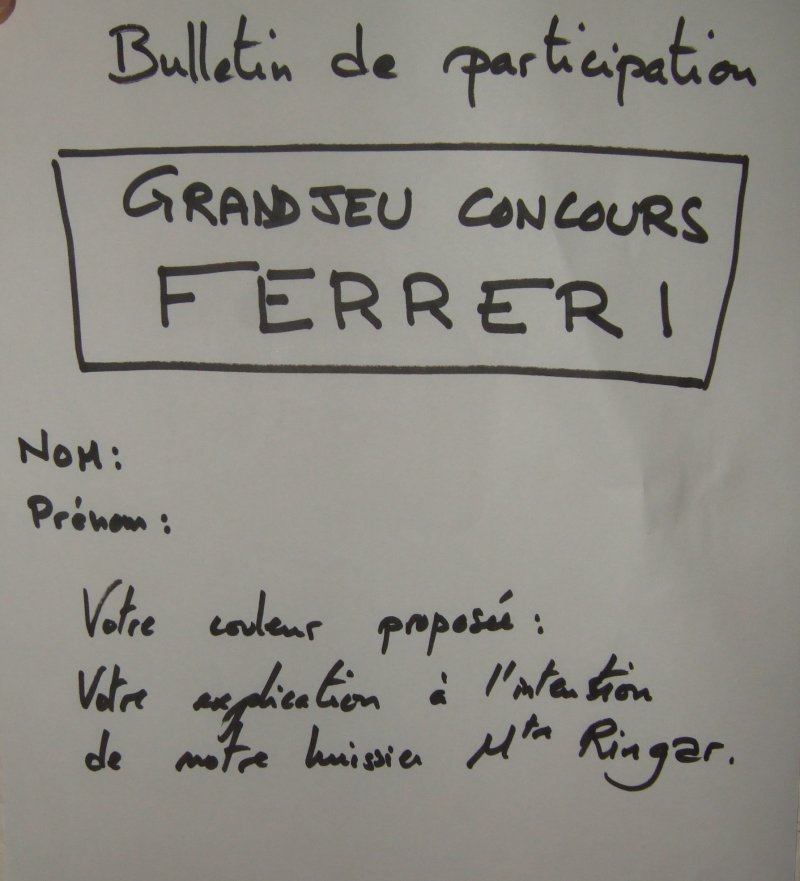 Bulletin de participation
GRAND JEU CONCOURS
FERRERI
NOM:
Prénom:
Votre couleur proposée:
Votre explication à l'intention
de notre huissier Mtre Ringar.